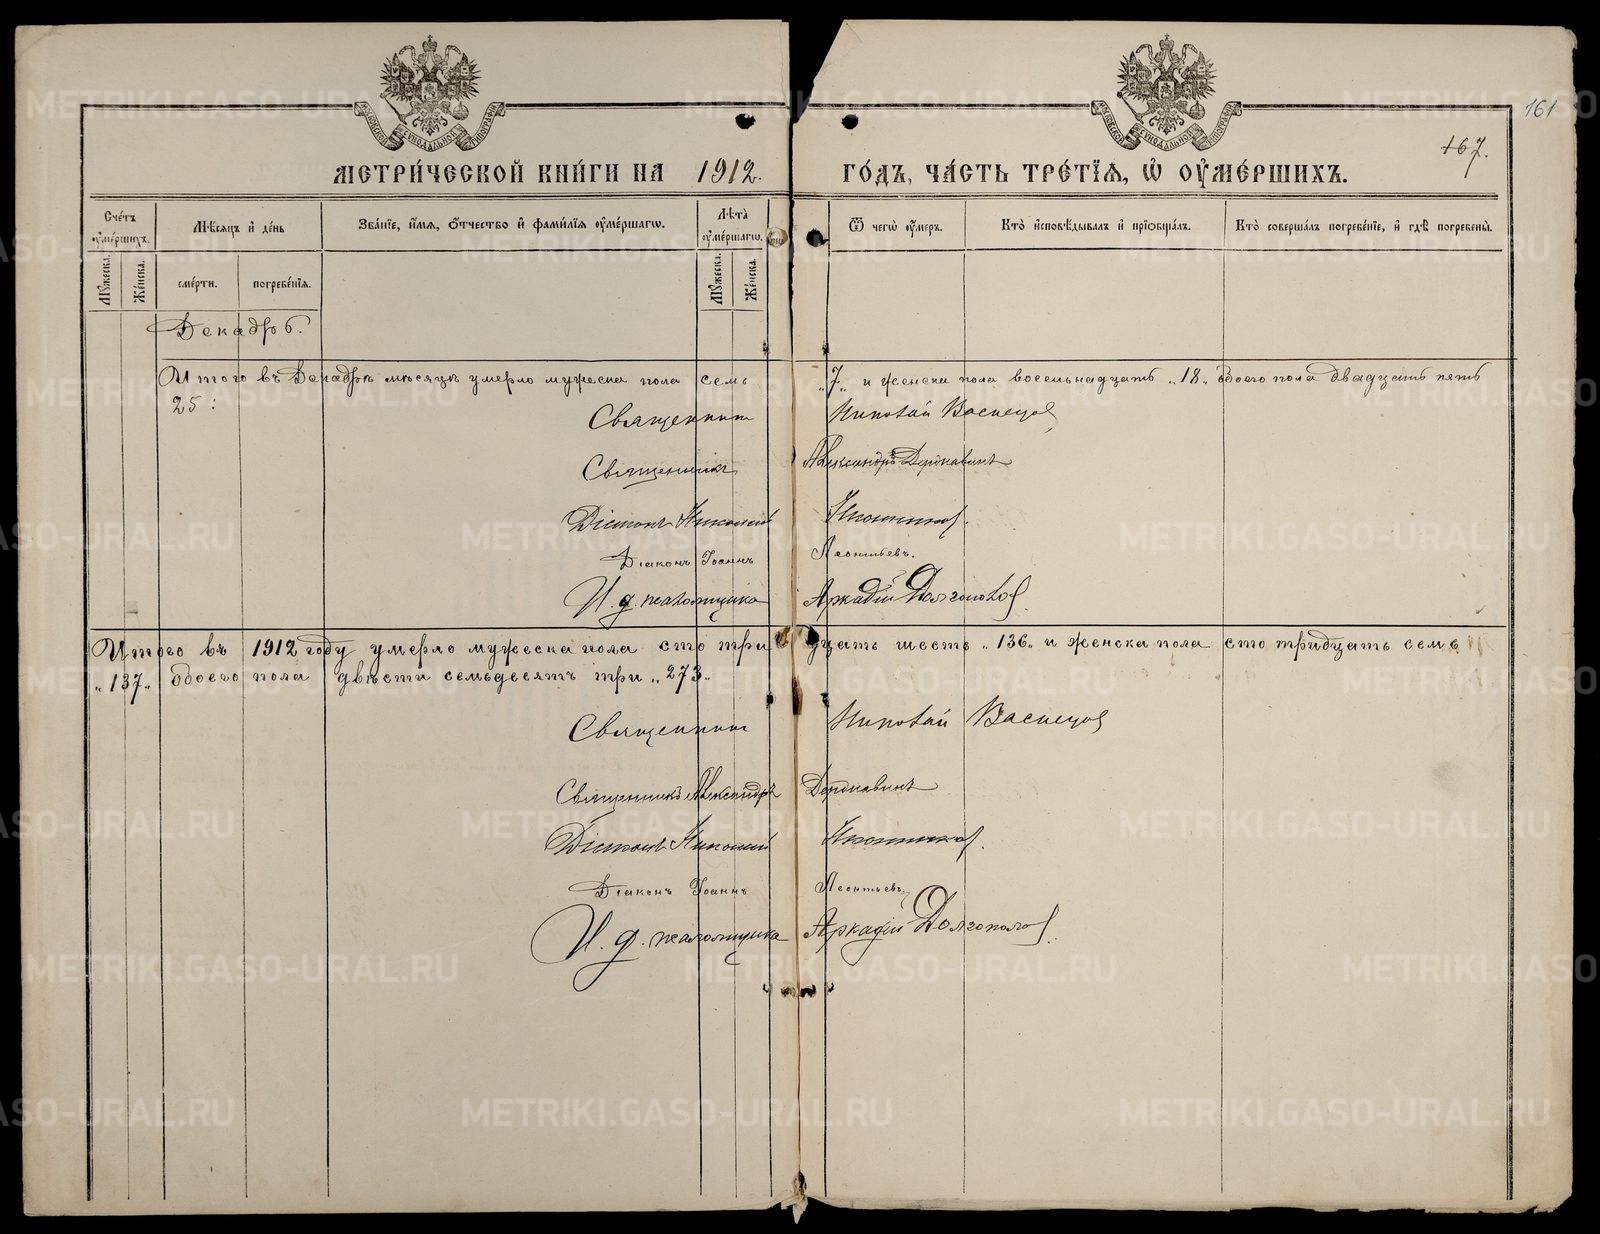 161
167.
МЕТРИ́ЧЕСКОЙ КНИ́ГИ НА 1912. ГО́ДЪ, ЧА́СТЬ ТРЕ́ТІѦ, Ѽ ОУ҆МЕ́РШИХЪ.
Сче́тъ оу҆ме́ршихъ.
Мꙋ́жеска.
Же́нска.
Мѣ́сяцъ и҆ де́нь
сме́рти.
погребе́нїѧ.
Зва́нїе, и҆́мѧ, ѻ҆́тчество и҆ фами́лїѧ оу҆ме́ршагѡ.
Лѣ́та оу҆ме́ршагѡ.
Мꙋ́жеска.
Же́нска.
Ѿ чегѡ̀ оу҆́меръ.
Кто̀ и҆сповѣ́дывалъ и҆ прїѡбща́лъ.
Кто̀ соверша́лъ погребе́нїе, и҆ гдѣ̀ погребены̀.
Декабрь.
Итого въ Декабрѣ мѣсяцѣ умерло мужеска пола семь „7„ и женска пола восемьнадцать „18„ обоего пола двадцать пять
25:
Священникъ Николай Васнецов
Священникъ Александръ Державинъ
Діаконъ Николай Иконников.
Діаконъ Іоаннъ Леонтьевъ.
И. д. псаломщика Аркадій Долгополов.
Итого въ 1912 году умерло мужеска пола сто тридцать шесть „136„ и женска пола сто тридцать семь
„137„ обоего пола двѣсти семьдесятъ три „273„
Священникъ Николай Васнецов
Священникъ Александръ Державинъ
Діаконъ Николай Иконников.
Діаконъ Іоаннъ Леонтьевъ.
И. д. псаломщика Аркадій Долгополов.
METRIKI.GASO-URAL.RU